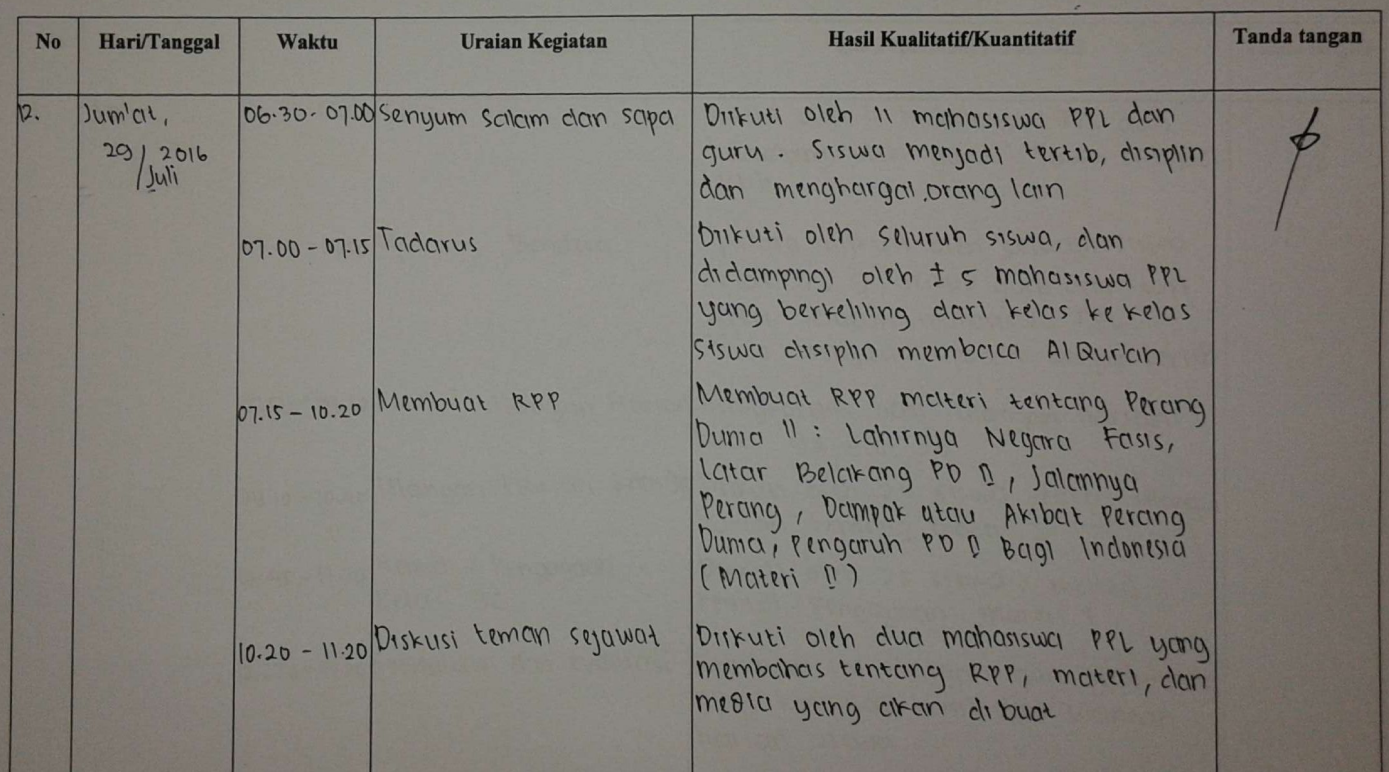 No Hari/Tanggal Waktu Uraian Kegiatan Hasil Kualitatif/Kuantitatif Tanda tangan
12. Jum'at, 06.30-07.00 Senyum salam dan sapa Diikuti oleh 11 mahasiswa PPL dan
29/ 2016 guru. Siswa menjadi tertib, disiplin
Juli dan menghargai orang lain
07.00 - 07.15 Tadarus Diikuti oleh seluruh siswa, dan
didampingi oleh ± 5 mahasiswa PPL
yang berkeliling dari kelas ke kelas
Siswa disiplin membaca Al Qur'an
07.15 - 10.20 Membuat RPP Membuat RPP materi tentang Perang
Dunia II : Lahirnya Negara Fasis,
Latar Belakang PD II, Jalannya
Perang, Dampak atau Akibat Perang
Dunia, Pengaruh PD II Bagi Indonesia
(Materi II)
10.20 - 11.20 Diskusi teman sejawat Diikuti oleh dua mahasiswa PPL yang
membahas tentang RPP, materi, dan
media yang akan di buat